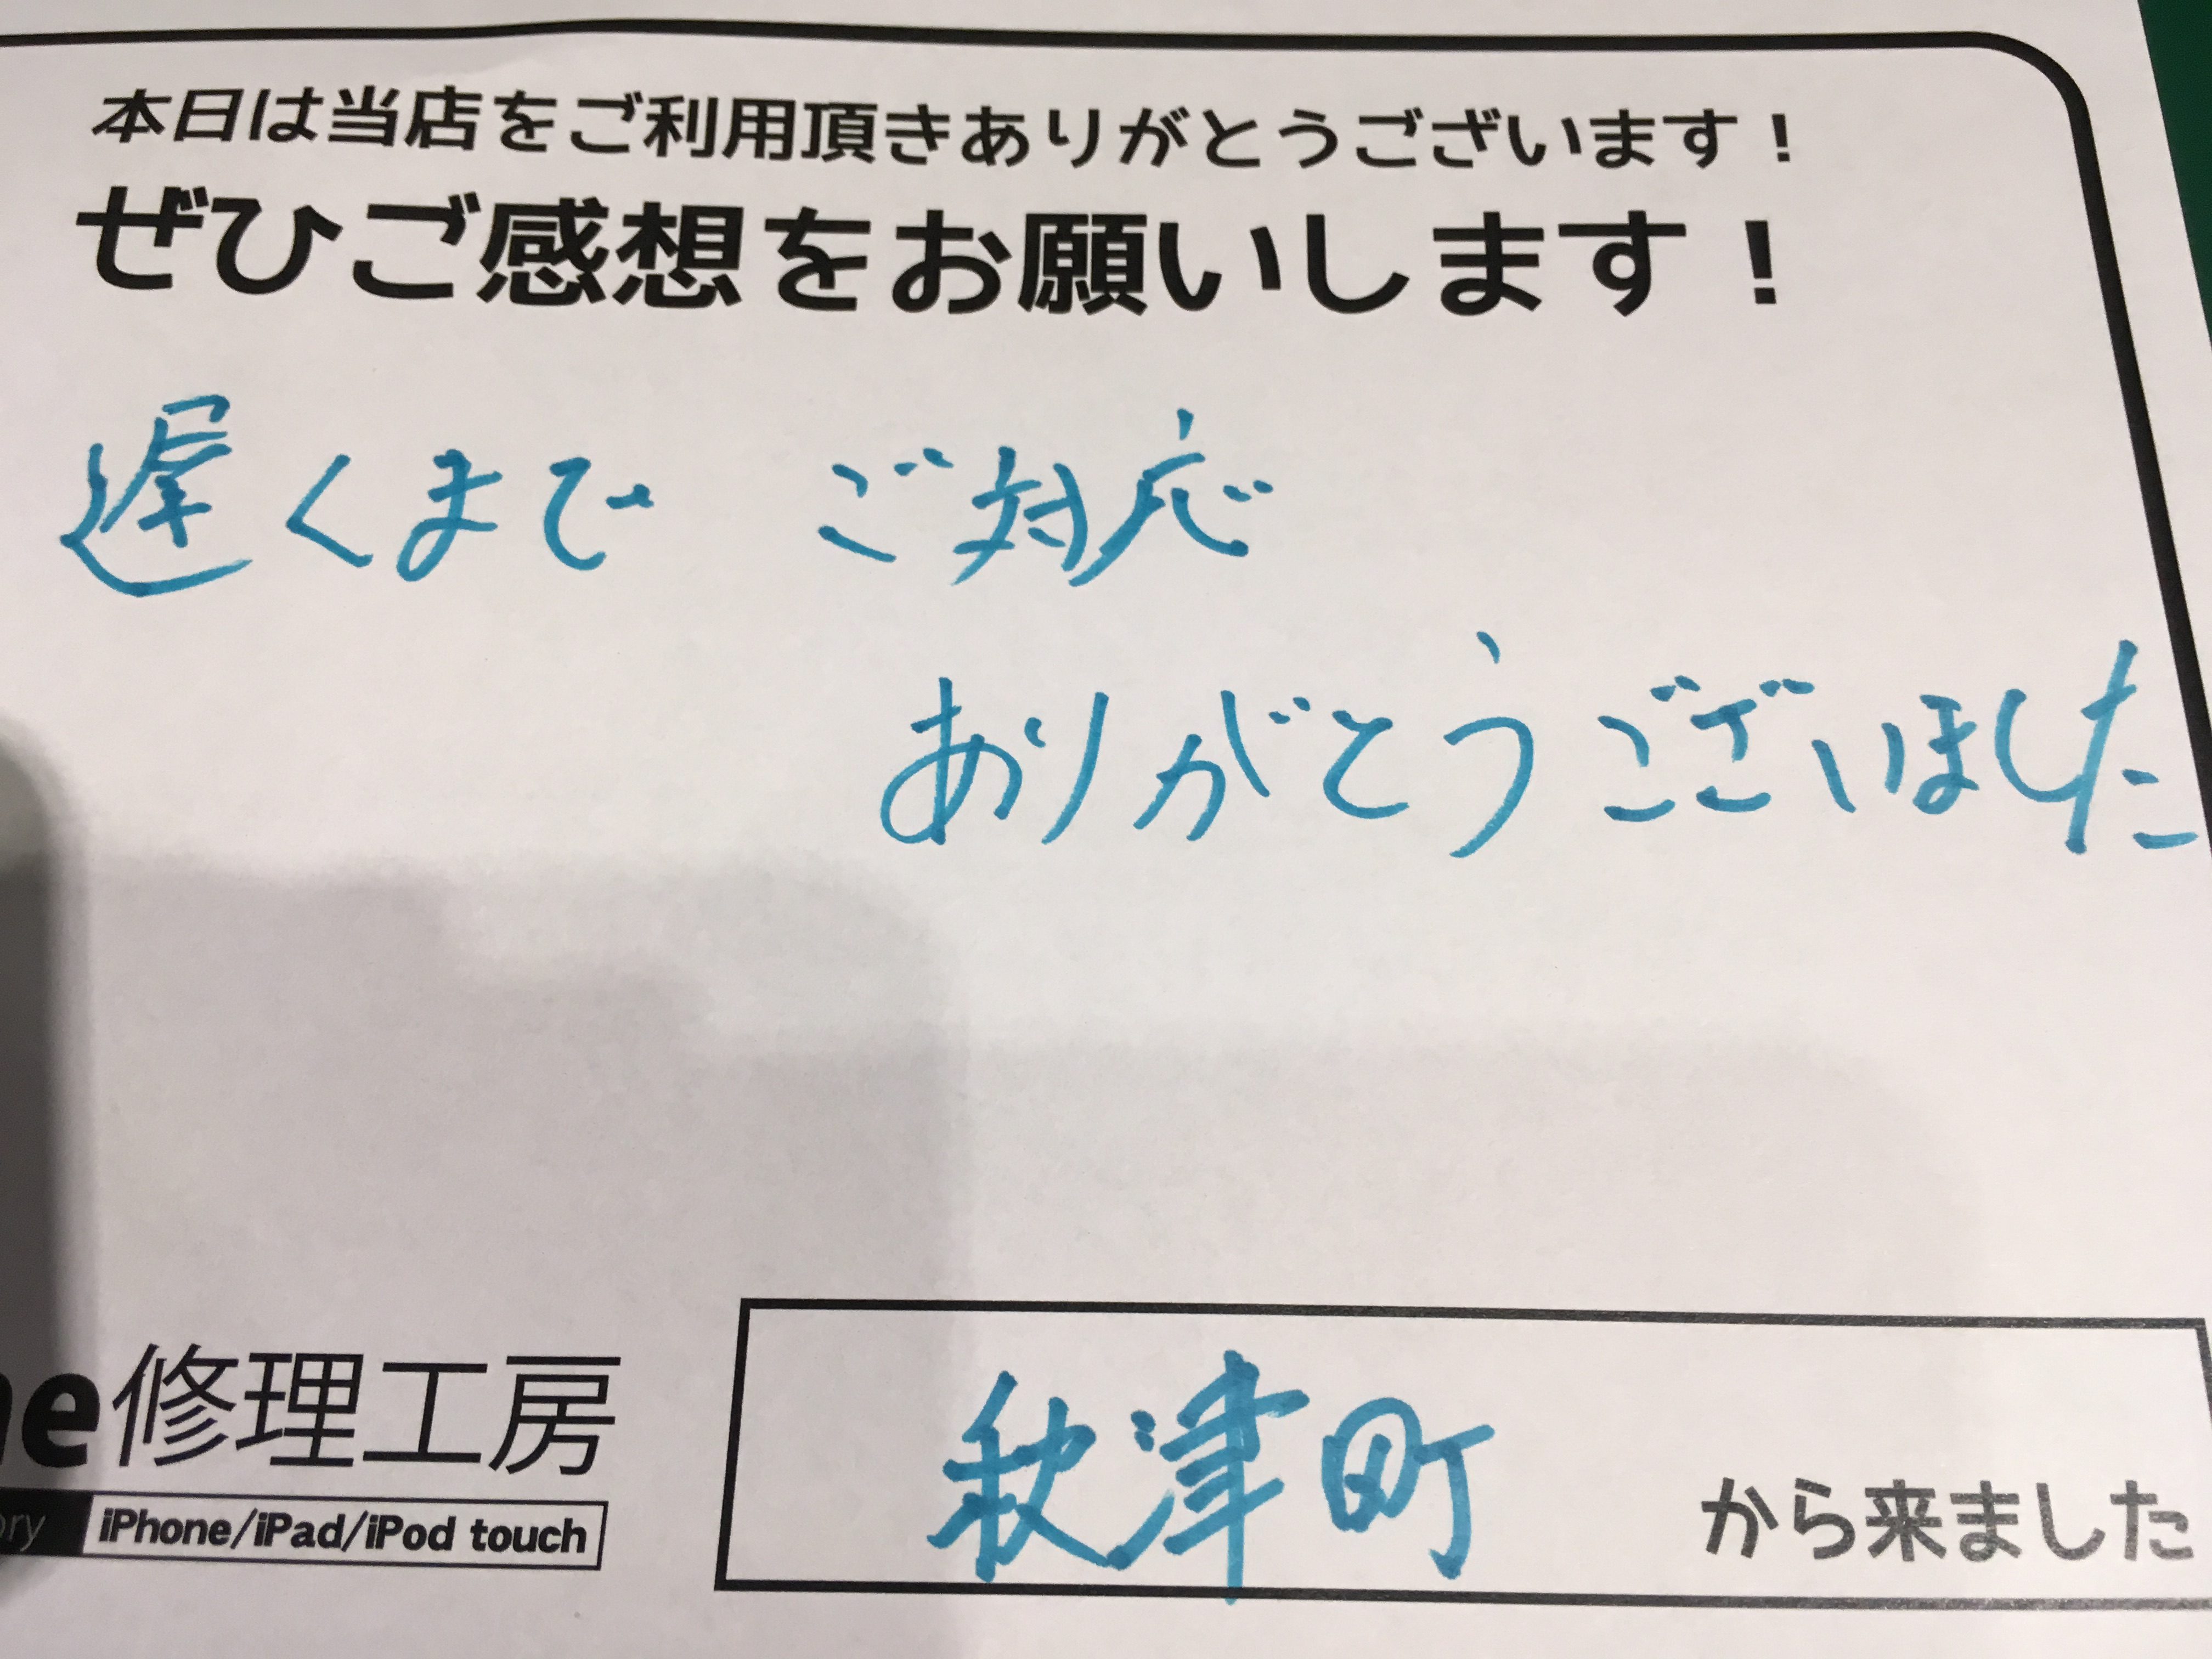 本日は当店をご利用頂きありがとうございます！
ぜひご感想をお願いします！
遅くまで ご対応
ありがとうございました
秋津町 から来ました
ne修理工房
ory iPhone/iPad/iPod touch